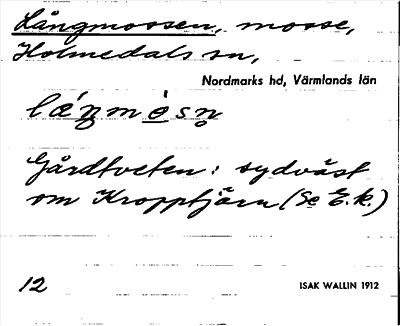 Långmossen, mosse,
Holmedals sn,
Nordmarks hd, Värmlands län
Gårdtveten: sydväst
om Kropptjärn (Se E.k.)
12 ISAK WALLIN 1912